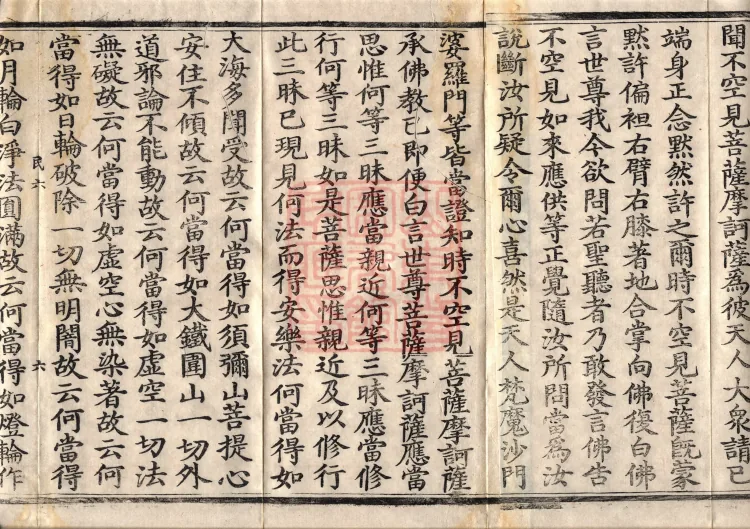 聞不空見菩薩摩訶薩為彼天人大衆請已
端身正念黙然許之爾時不空見菩薩旣蒙
黙許偏袒右臂右膝著地合掌向佛復白佛
言世尊我今欲問若聖聽者乃敢發言佛告
不空見如來應供等正覺隨汝所問當為汝
說斷汝所疑令爾心喜然是天人梵魔沙門
婆羅門等皆當證知時不空見菩薩摩訶薩
承佛教已即便白言世尊菩薩摩訶薩應當
思惟何等三昧應當親近何等三昧應當修
行何等三昧如是菩薩思惟親近及以修行
此三昧已現見何法而得安樂法何當得如
大海多聞受故云何當得如須彌山菩提心
安住不傾故云何當得如大鐵圍山一切外
道邪論不能動故云何當得如虛空一切法
無礙故云何當得如虛空心無染著故云何
當得如日輪破除一切無明闇故云何當得
民六 六
如月輪白淨法圓滿故云何當得如燈輪作